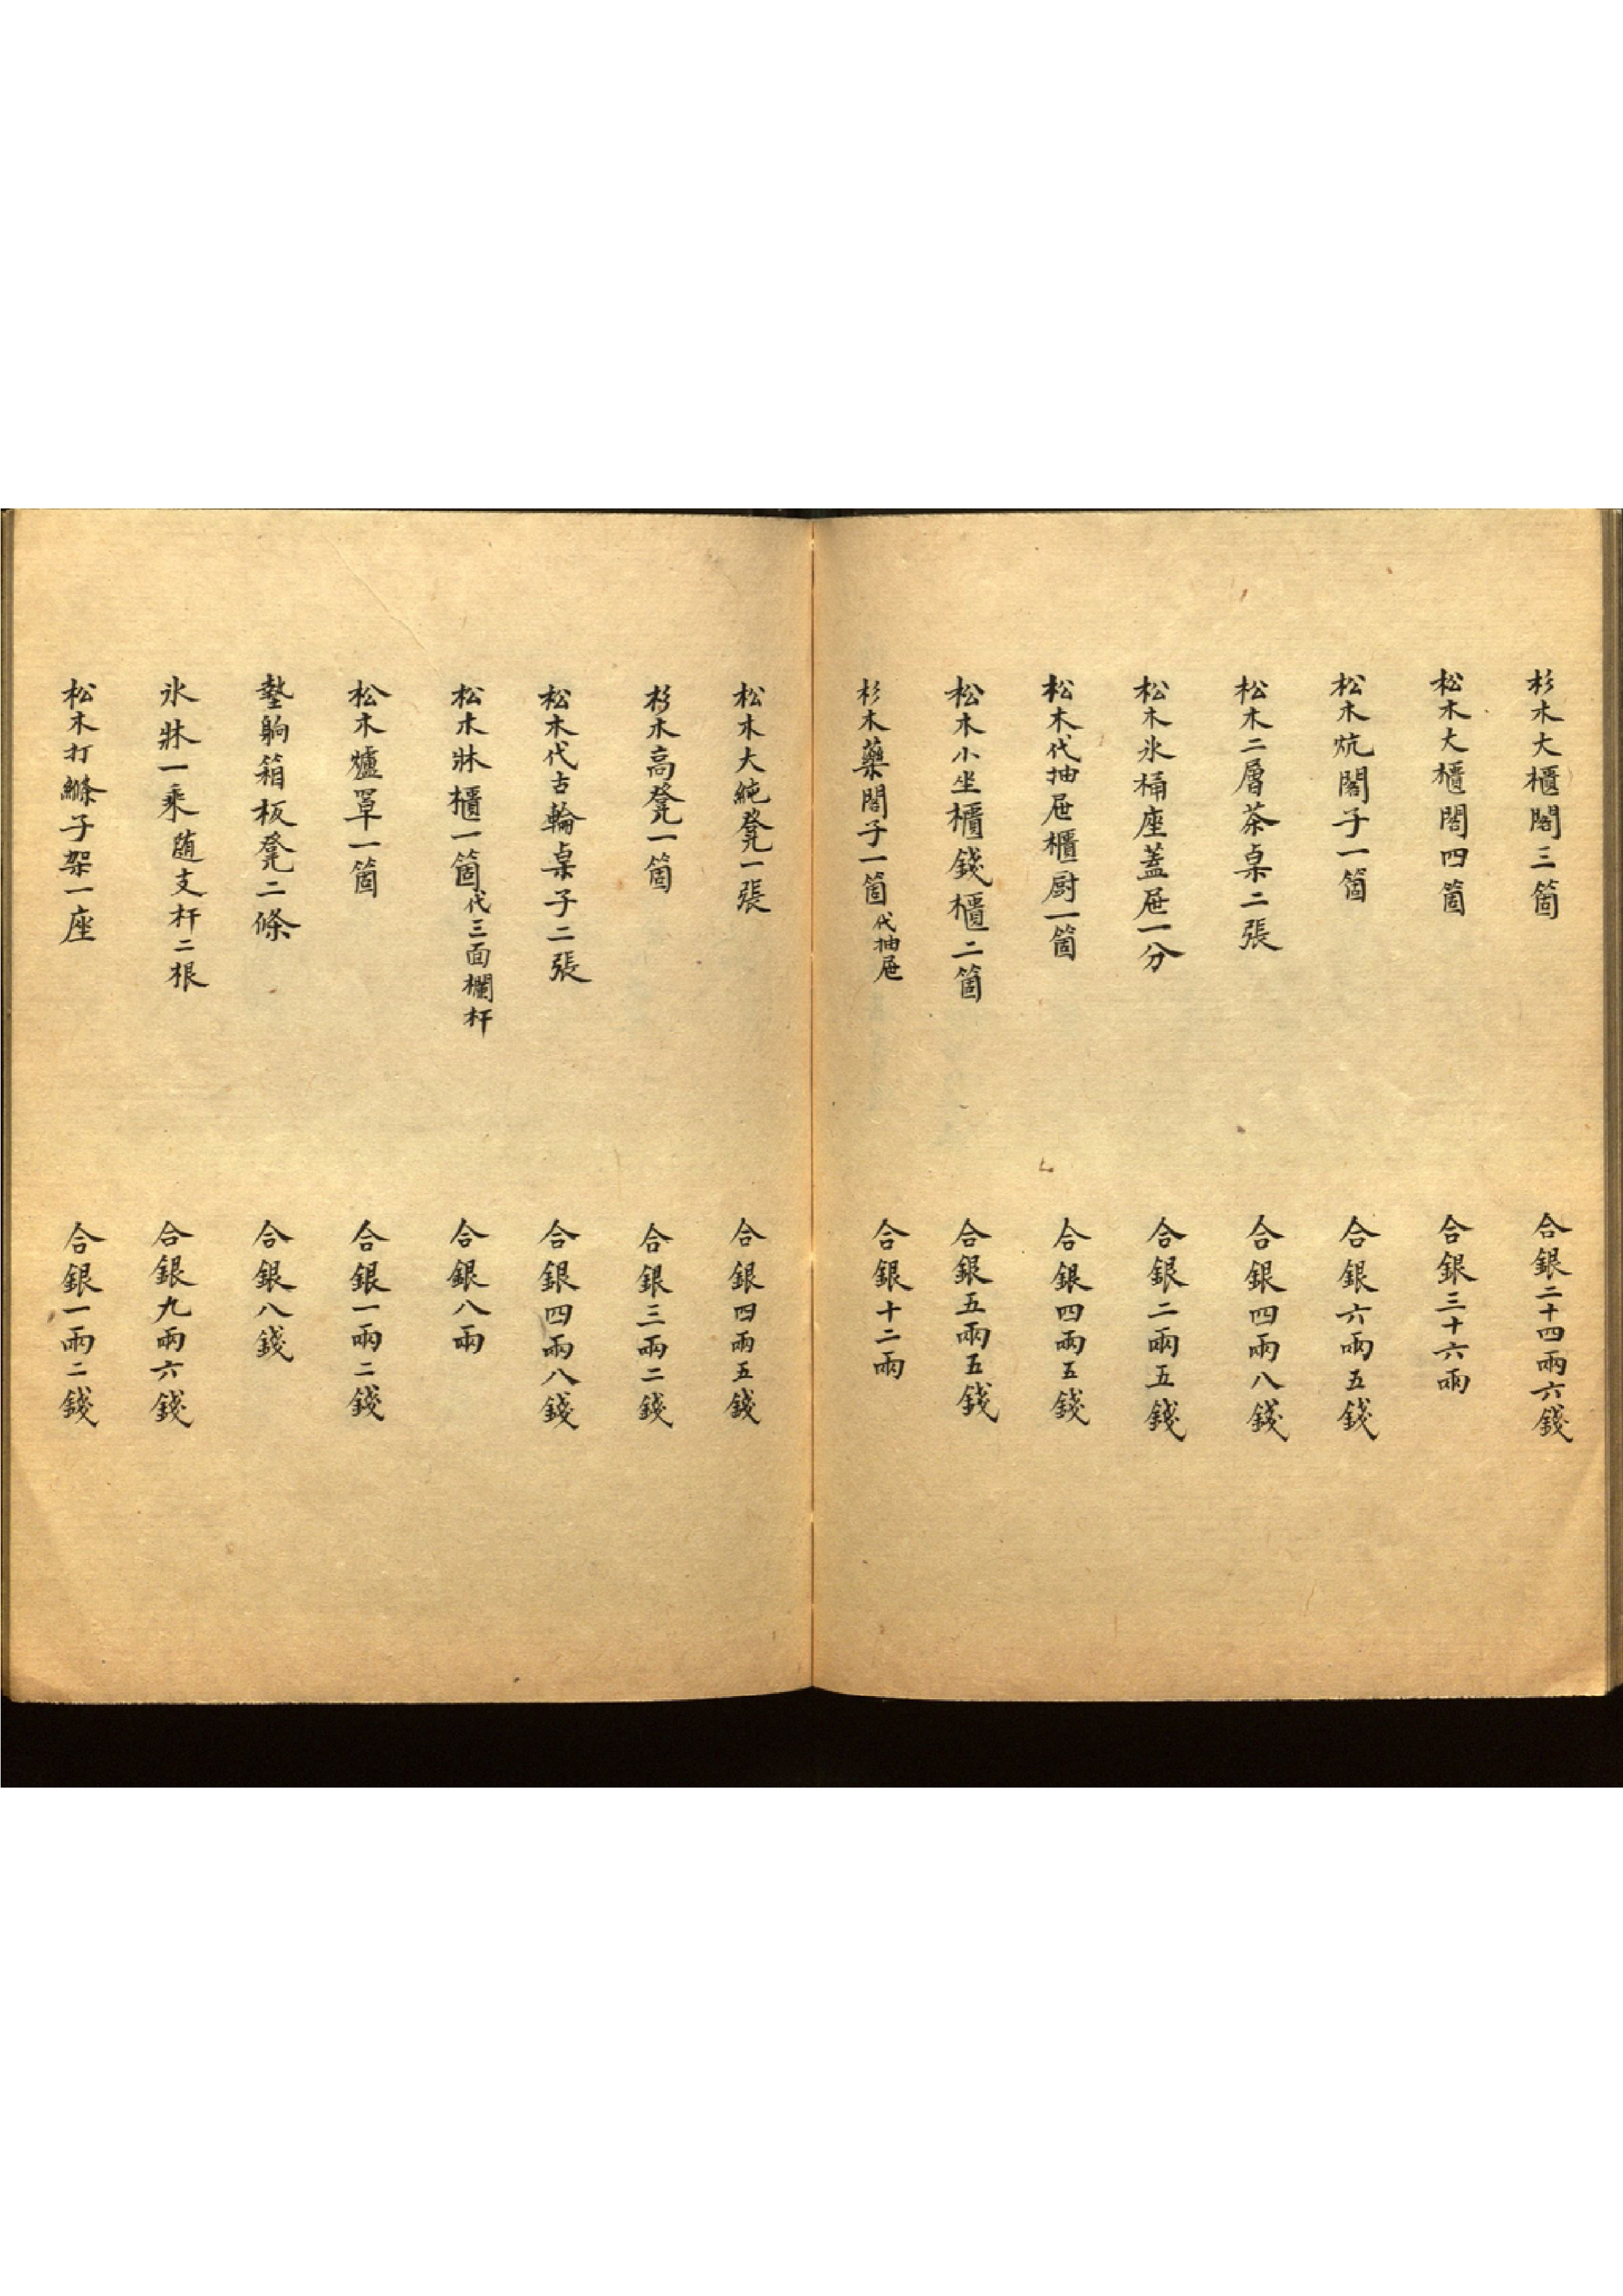 杉木大櫃閣三箇 合銀二十四兩六錢
松木大櫃閣四箇 合銀三十六兩
松木炕閣子一箇 合銀六兩五錢
松木二層茶桌二張 合銀四兩八錢
松木氷桶座蓋屉一分 合銀二兩五錢
松木代抽屉櫃厨一箇 合銀四兩五錢
松木小坐櫃錢櫃二箇 合銀五兩五錢
杉木藥閣子一箇代抽屉 合銀十二兩
松木大純凳一張 合銀四兩五錢
杉木高凳一箇 合銀三兩二錢
松木代古輪桌子二張 合銀四兩八錢
松木牀櫃一箇代三面欄杆 合銀八兩
松木爐罩一箇 合銀一兩二錢
墊躺箱板凳二條 合銀八錢
氷牀一乘随支杆二根 合銀九兩六錢
松木打縧子架一座 合銀一兩二錢